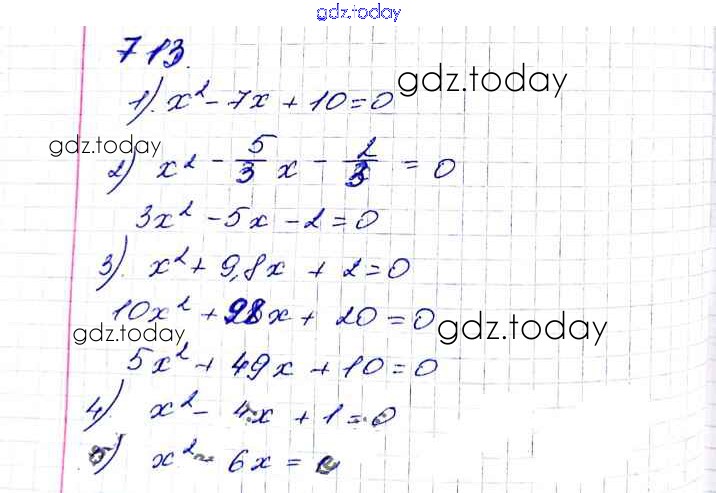 gdz.today
713.
1). x² - 7x + 10 = 0
gdz.today
gdz.today
2) x² - 5/3 x - 2/3 = 0
3x² - 5x - 2 = 0
3). x² + 9,8x + 2 = 0
10x² + 98x + 20 = 0
gdz.today
gdz.today
5x² + 49x + 10 = 0
4). x² - 4x + 1 = 0
5) x² - 6x = 0